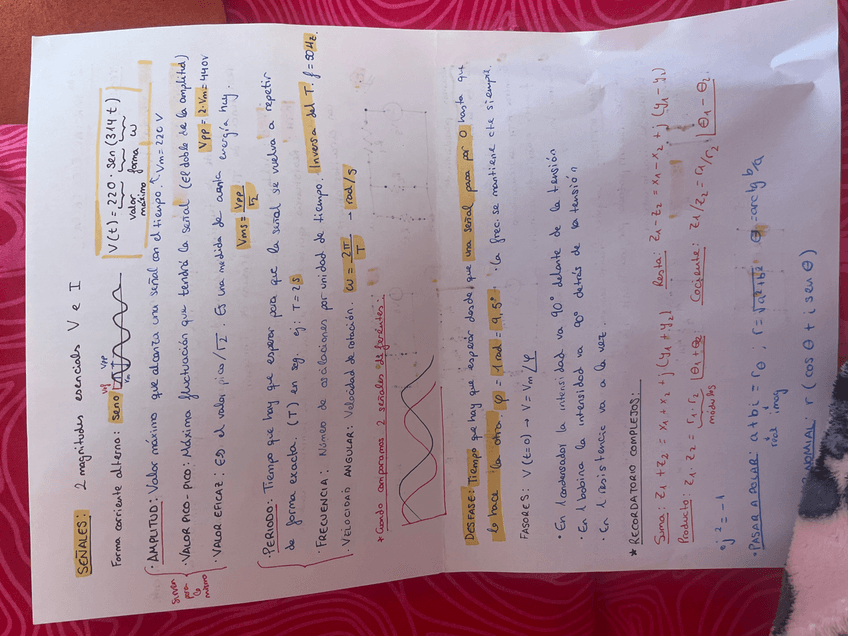 SEÑALES: 2 magnitudes esenciales V e I
Forma corriente alterna: seno
Vpp
V(t) = 220 · sen (314 t)
valor máximo forma ω
· AMPLITUD: Valor máximo que alcanza una señal en el tiempo. Vm = 220 V
· VALOR PICO-PICO: Máxima fluctuación que tendrá la señal (El doble de la amplitud)
Vpp = 2·Vm = 440V
Sirven para lo mismo
· VALOR EFICAZ: Es el valor pico/√2. Es una medida de cuánta energía hay.
Vms = Vpp/√2
· PERIODO: Tiempo que hay que esperar para que la señal se vuelva a repetir
de forma exacta. (T) en seg. ej: T = 2s
· FRECUENCIA: Número de oscilaciones por unidad de tiempo. Inversa del T. f = 50Hz.
· VELOCIDAD ANGULAR: Velocidad de rotación. ω = 2π/T → rad/s
* Cuando comparamos 2 señales diferentes:
DESFASE: Tiempo que hay que esperar desde que una señal pasa por 0 hasta que
lo hace la otra. φ = 1 rad = 9,5°. · la frec. se mantiene cte siempre.
FASORES: V(t=0) → V = Vm ∠φ
• En 1 condensador la intensidad va 90° delante de la tensión
• En 1 bobina la intensidad va 90° detrás de la tensión
• En 1 resistencia va a la vez.
* RECORDATORIO COMPLEJOS:
Suma: z1 + z2 = x1 + x2 + j (y1 + y2) Resta: z1 - z2 = x1 - x2 + j (y1 - y2)
Producto: z1 · z2 = r1 · r2 ∠θ1 + θ2 Cociente: z1/z2 = r1/r2 ∠θ1 - θ2
módulos
• j² = -1
• PASAR A POLAR: a + bi = rθ ; r = √a² + b² θ = arctg b/a
real imag
NOMIAL: r (cos θ + i sen θ)